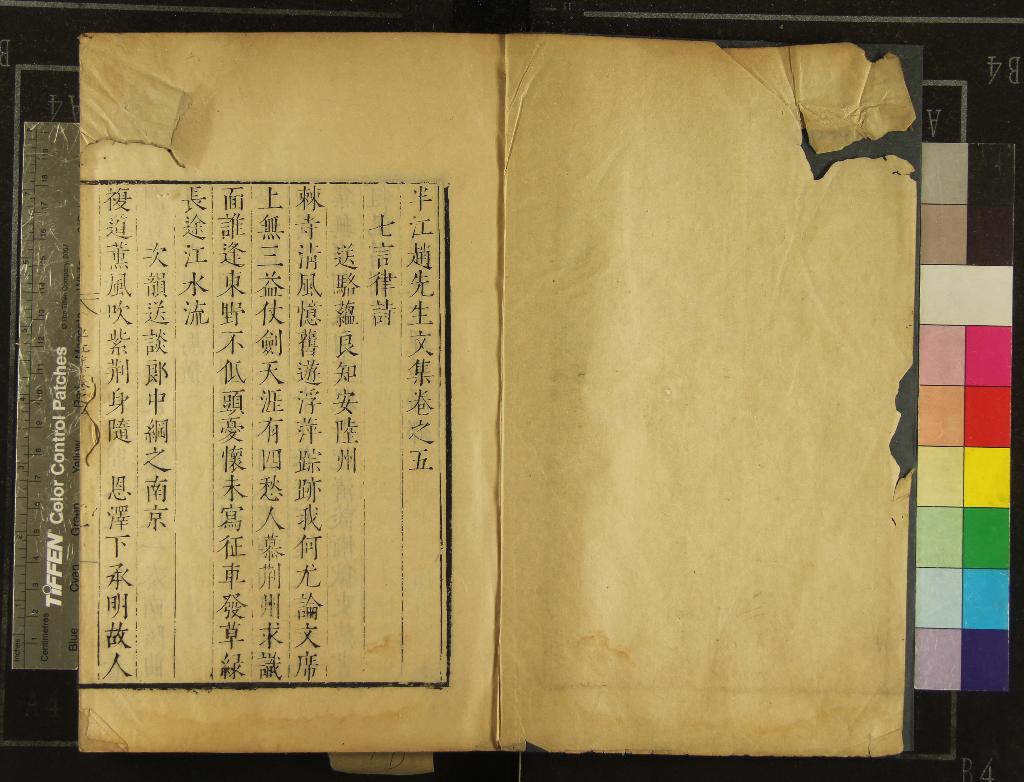 半江趙先生文集卷之五
七言律詩
送駱蘊良知安陸州
棘寺清風憶舊遊浮萍踪跡我何尤論文席
上無三益仗劍天涯有四愁人慕荊州求識
面誰逢東野不低頭憂懷未寫征車發草綠
長途江水流
次韻送談郎中綱之南京
複道薫風吹紫荊身隨 恩澤下承明故人
TIFFEN Color Control Patches
© The Tiffen Company, 2007
Centimetres
Inches
Blue
Cyan
Green
Yellow
A4
B4
A
B4